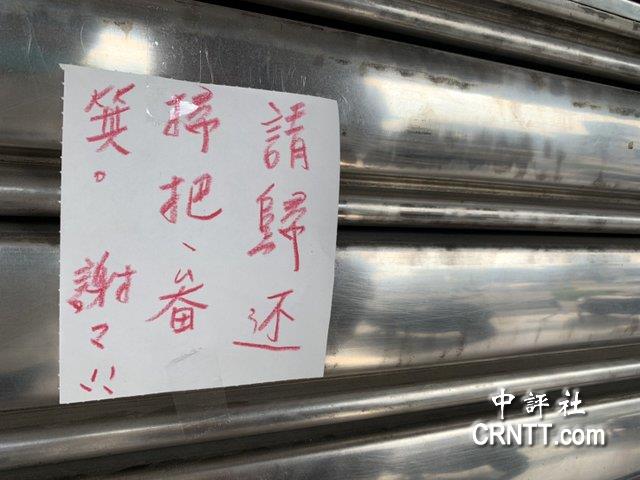 請歸还
掃把、畚
箕。謝々!!
中評社
CRNTT.com